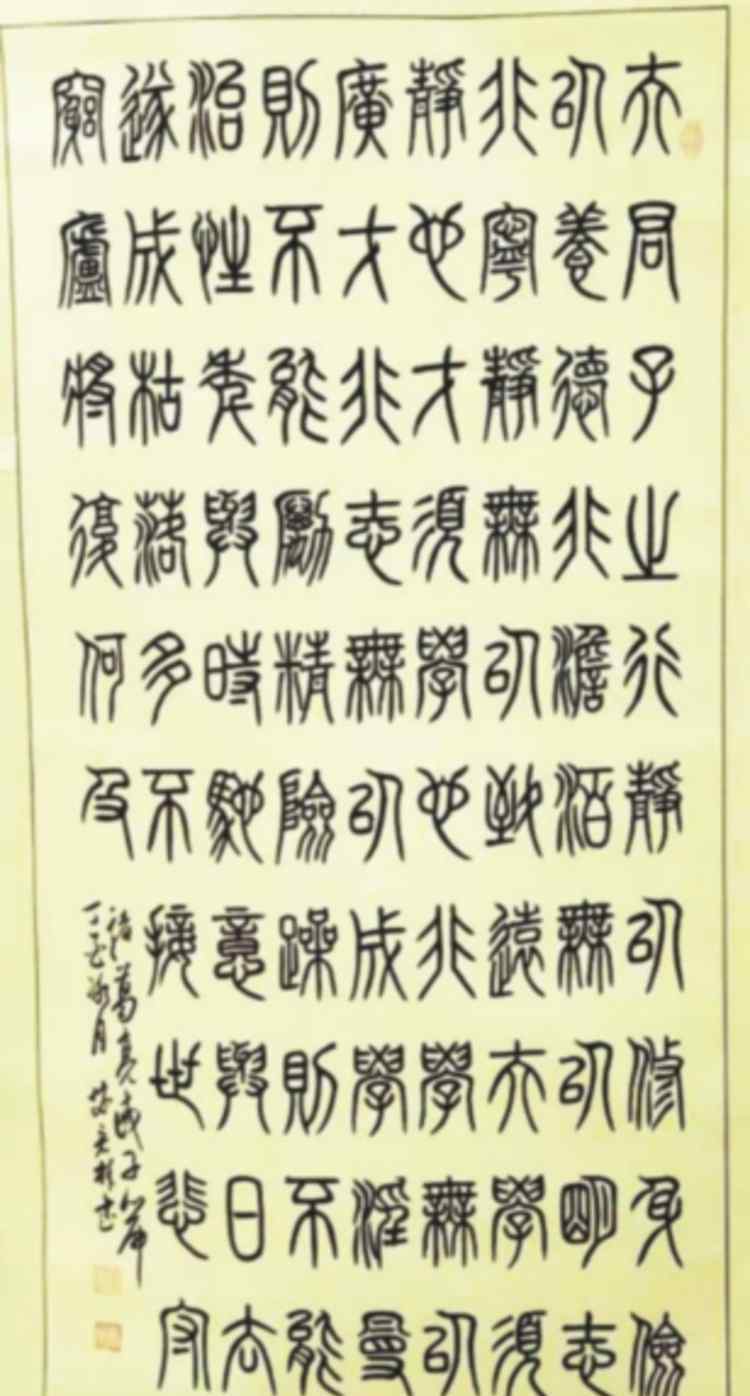 夫君子之行靜以修身儉
以養德非澹泊無以明志
非寧靜無以致遠夫學須
靜也才須學也非學無以
廣才非志無以成學淫曼
則不能勵精險躁則不能
治性年與時馳意與日去
遂成枯落多不接世悲守
窮廬將復何及
諸葛亮誡子書